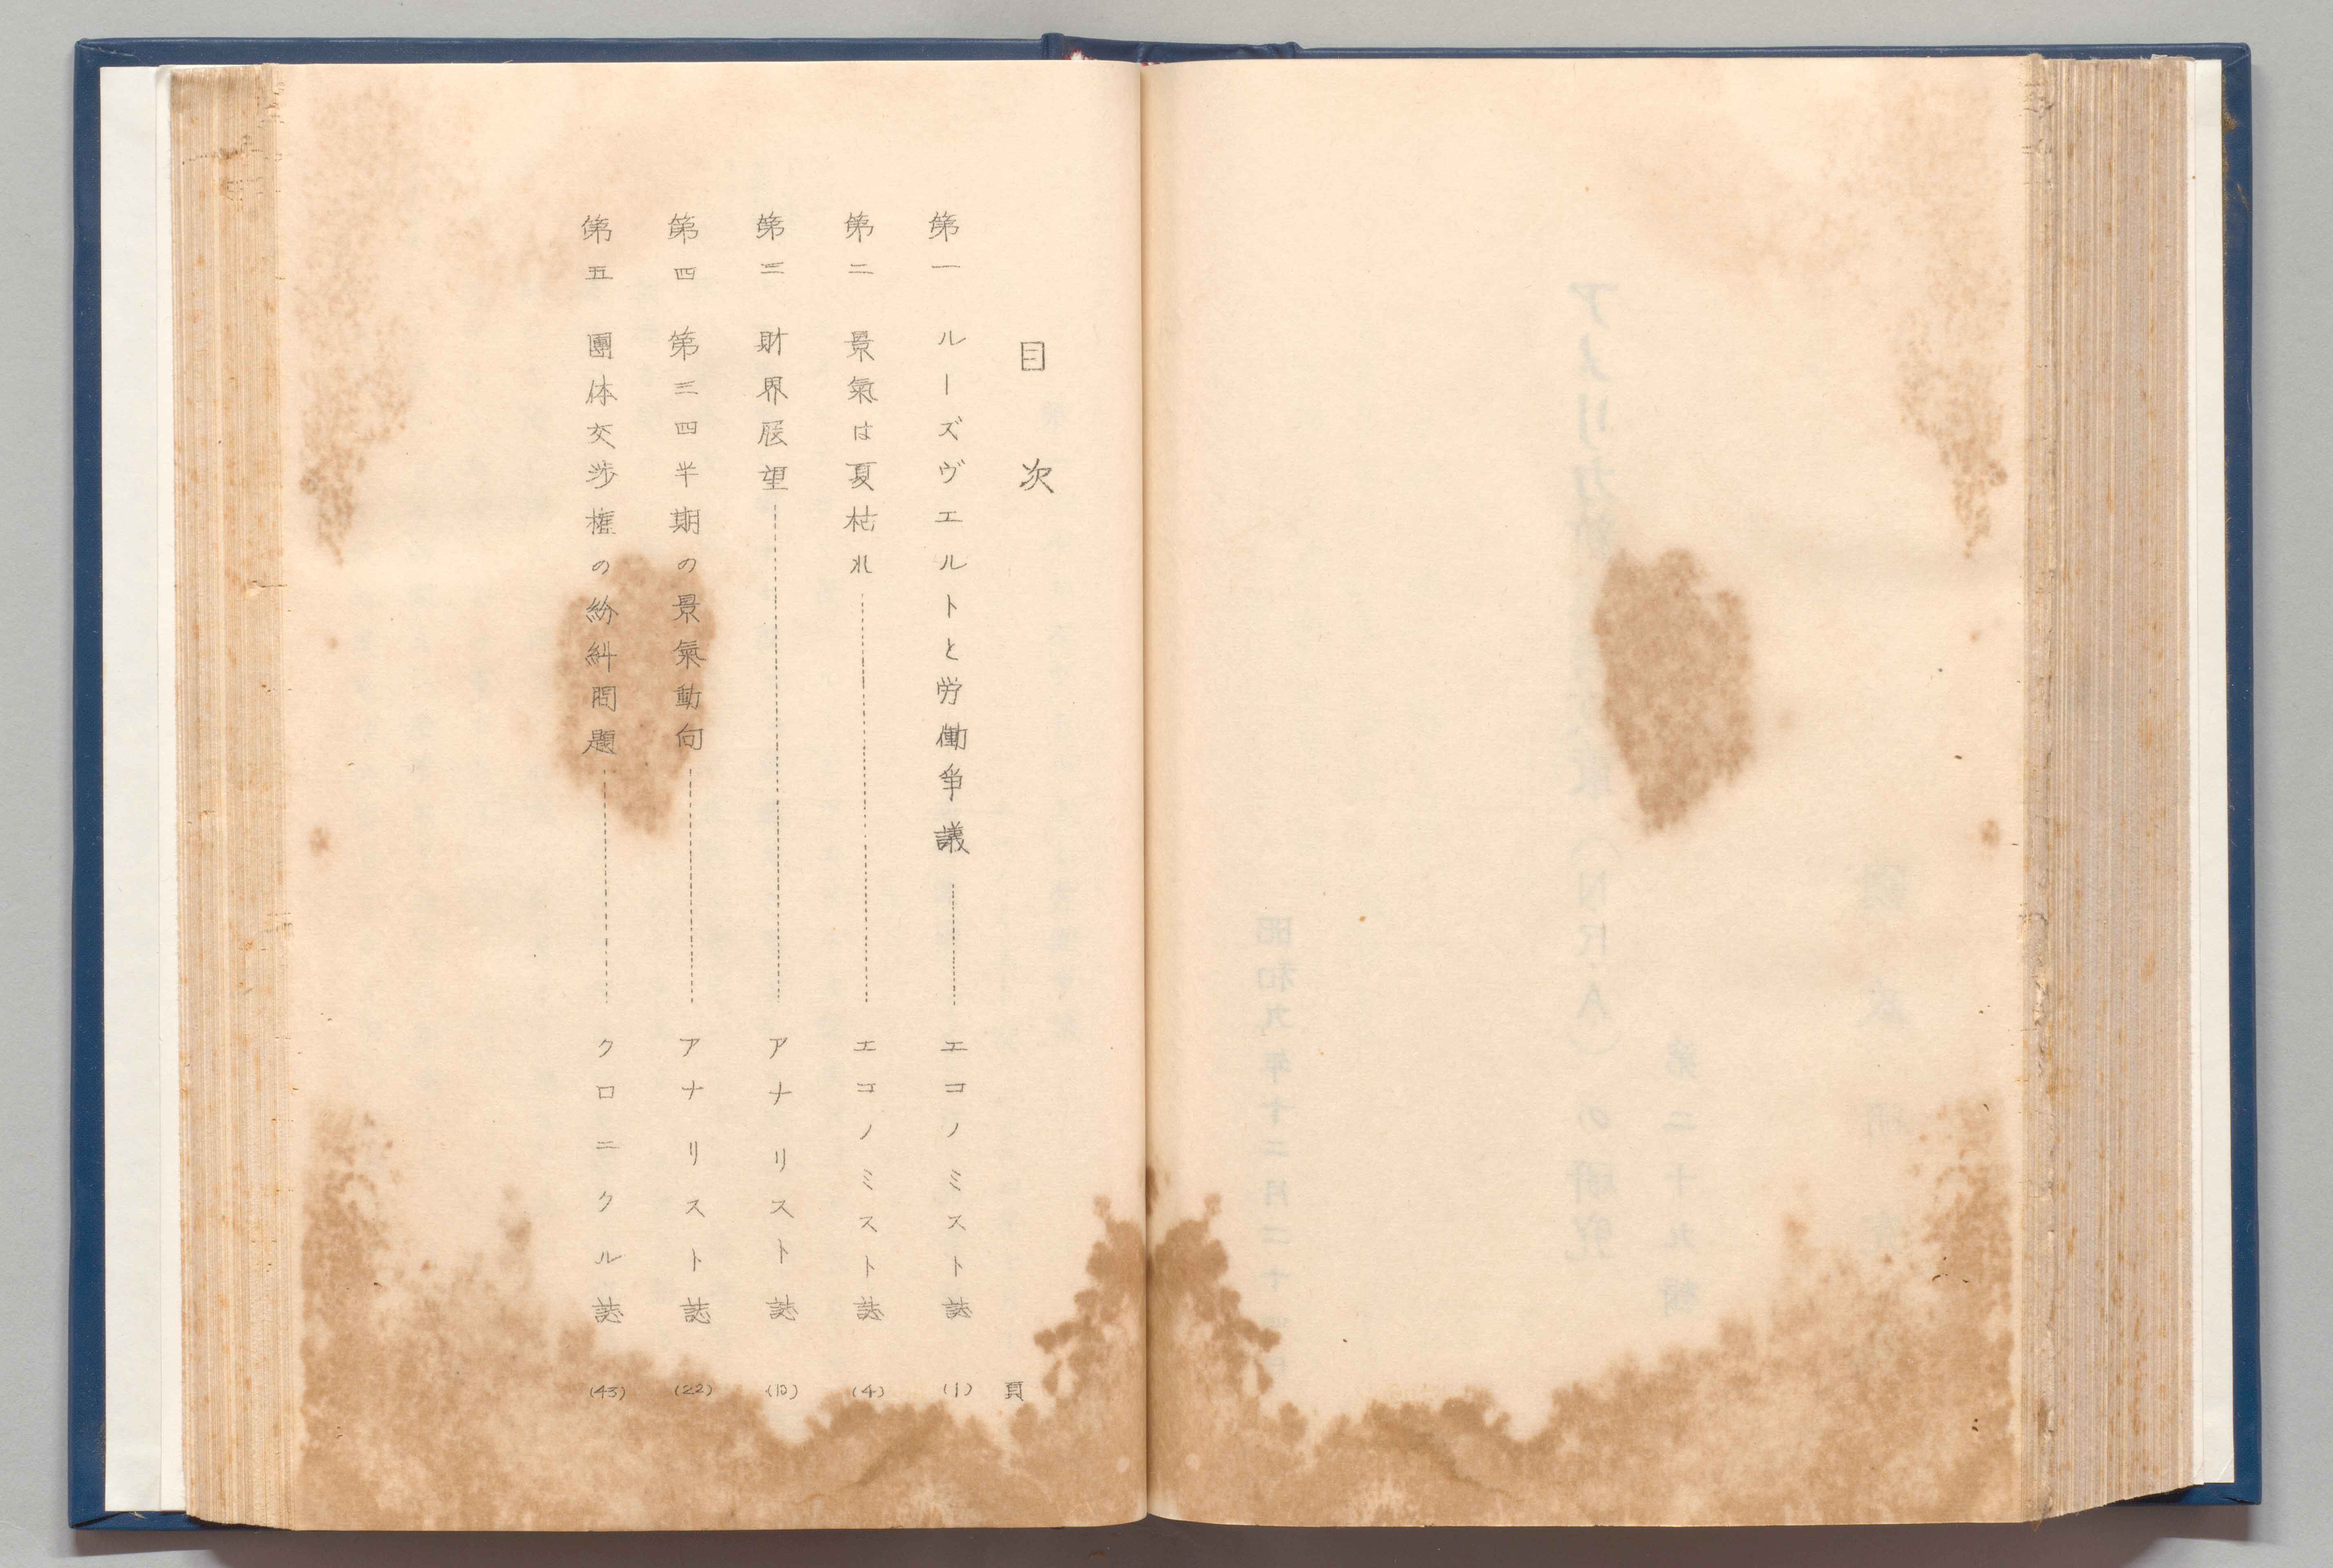 目次
頁
第一 ルーズヴエルトと労働爭議 エコノミスト誌 (1)
第二 景氣は夏枯れ エコノミスト誌 (4)
第三 財界展望 アナリスト誌
第四 第三四半期の景氣動向 アナリスト誌 (22)
第五 團体交渉権の紛糾問題 クロニクル誌 (43)